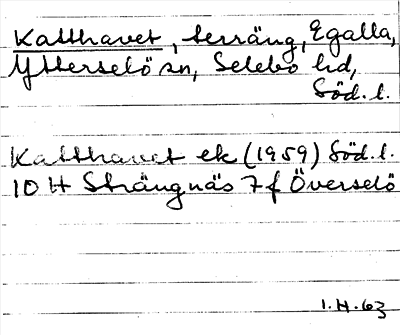 Katthavet, terräng, Egalla,
Ytterselö sn, Selebo hd,
Söd. l.
Katthavet ek (1959) Söd. l.
10 H Strängnäs 7 f Överselö
1.H.63